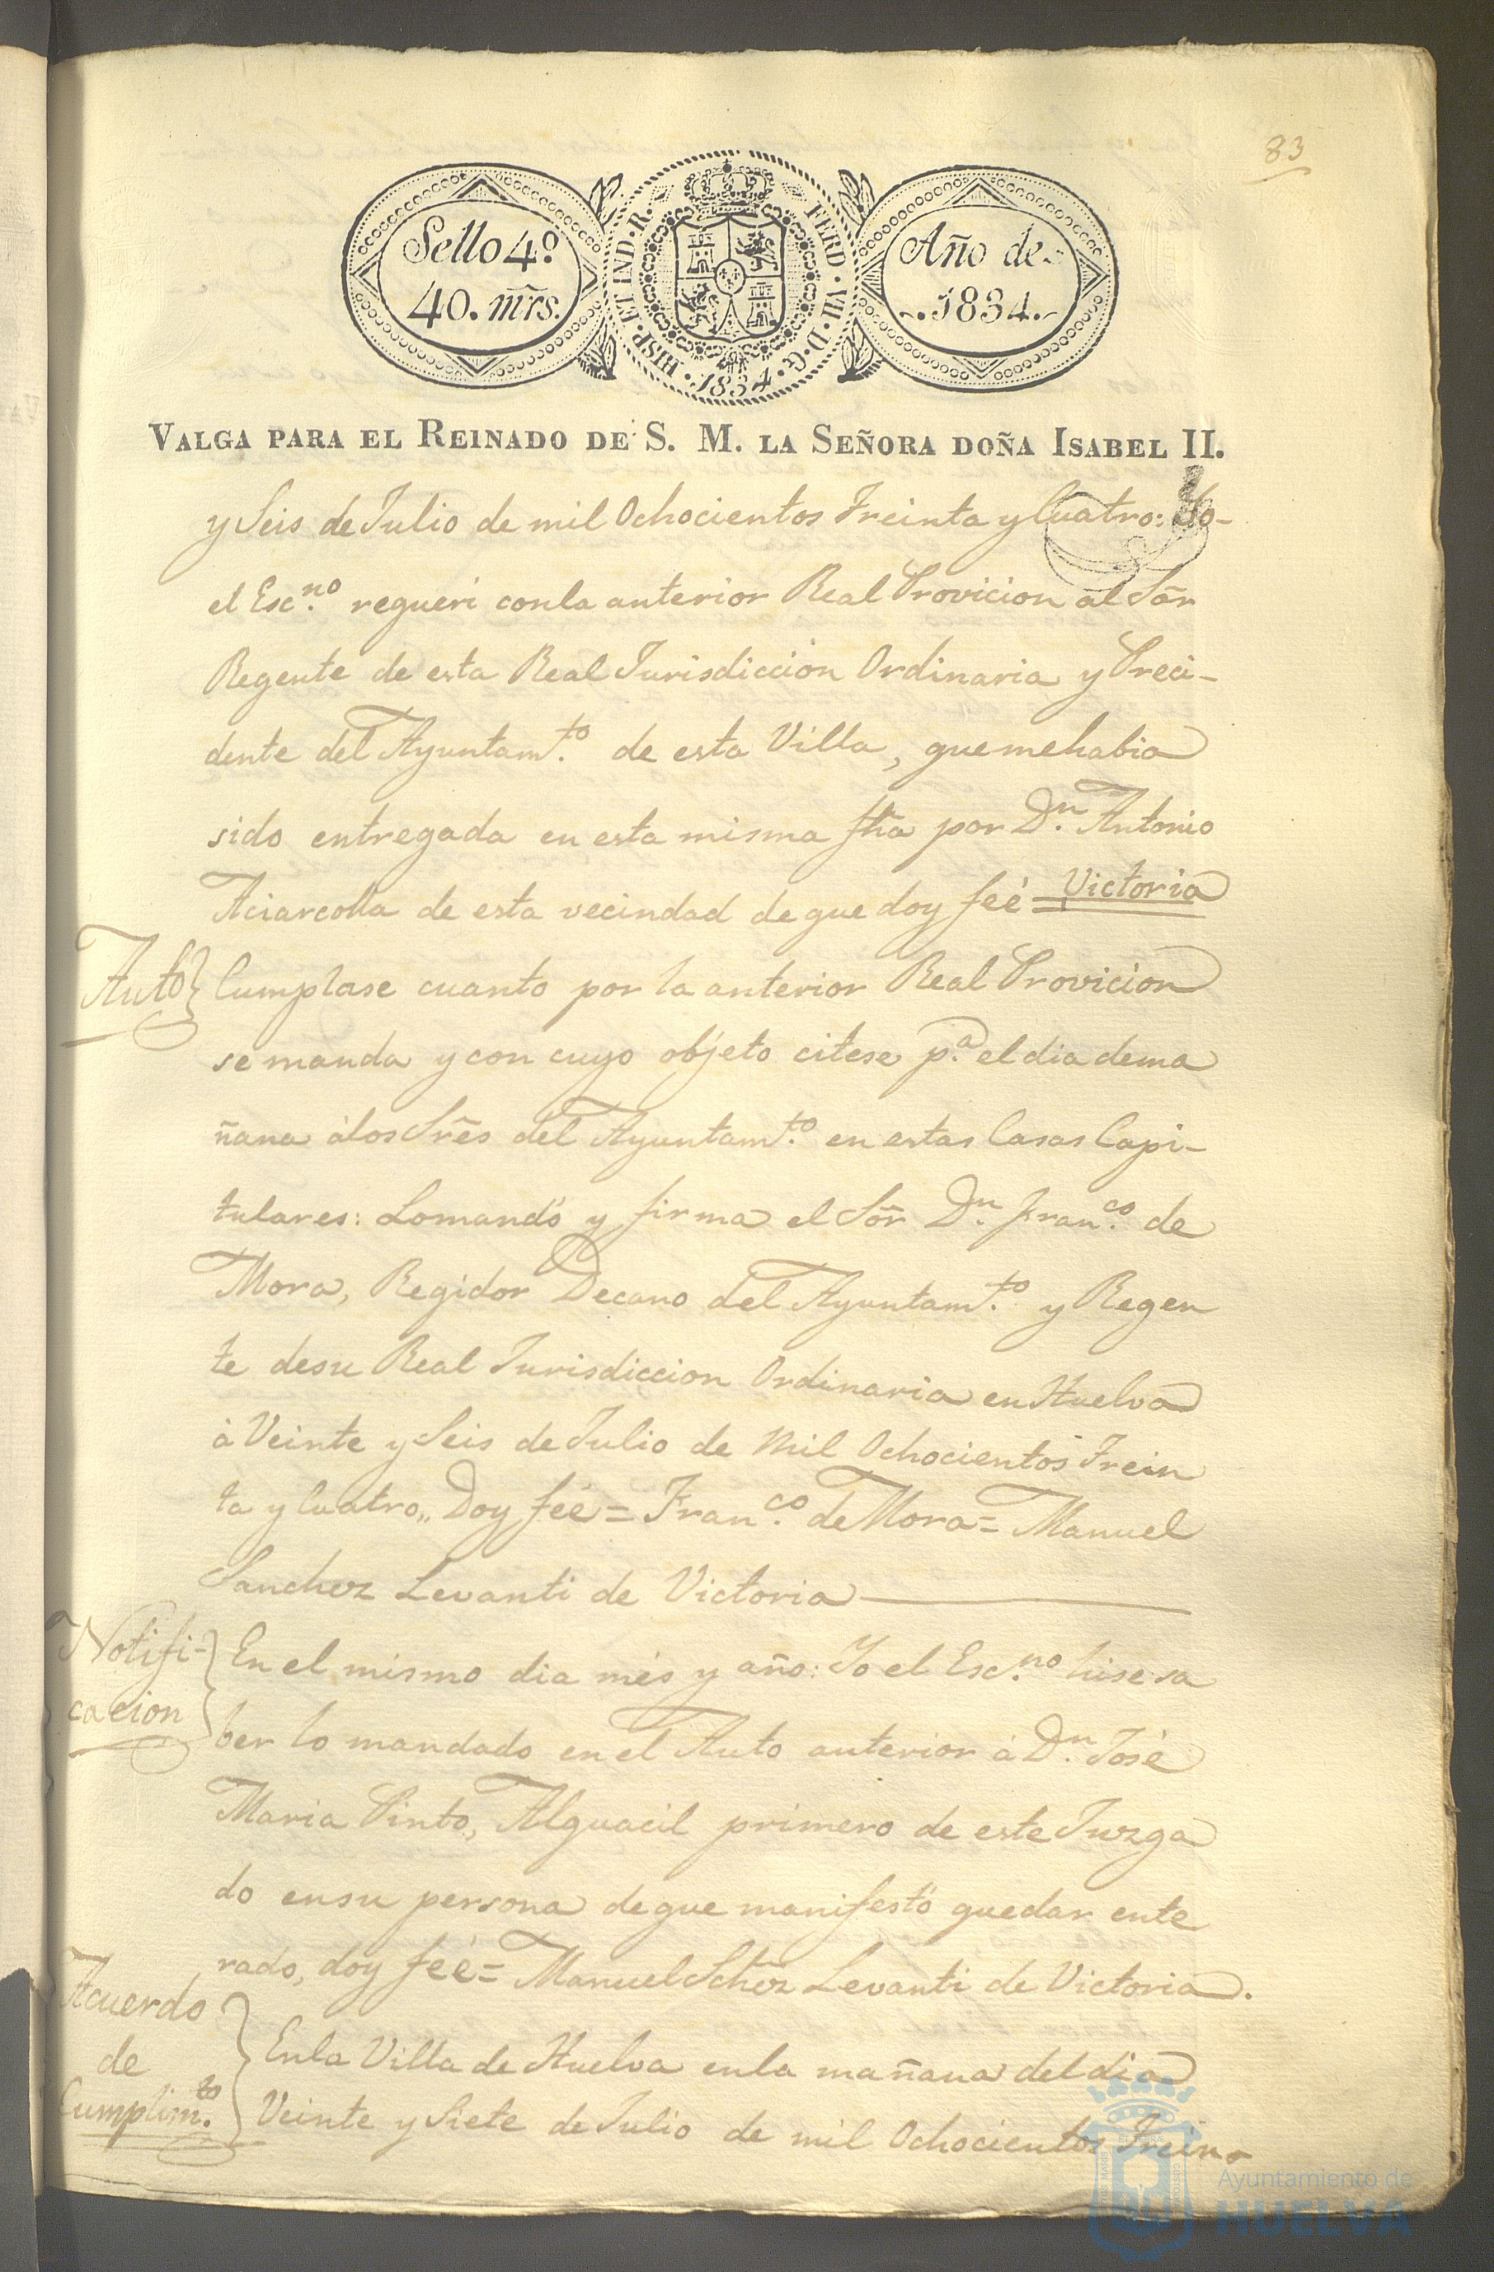 83
Sello 4.º
40. mrs.
HISP. ET IND. R.
FERD. VII. D. G.
1834
Año de
1834.
VALGA PARA EL REINADO DE S. M. LA SEÑORA DOÑA ISABEL II.
y Seis de Julio de mil Ochocientos Treinta y Cuatro: Yo
el Esc.no requeri conla anterior Real Provicion al Sõr
Regente de esta Real Jurisdiccion Ordinaria y Preci-
dente del Ayuntam.to de esta Villa, que me habia
sido entregada en esta misma fha por D.n Antonio
de esta vecindad de que doy feé = Victoria
Auto} Cumplase cuanto por la anterior Real Provicion
se manda y con cuyo objeto citese p.a el dia dema
ñana álos Sres del Ayuntam.to en estas Casas Capi-
tulares: Lomandó y firma el Sõr D.n Fran.co de
Mora, Regidor Decano del Ayuntam.to y Regen
te desu Real Jurisdiccion Ordinaria en Huelva
á Veinte y Seis de Julio de Mil Ochocientos Trein
ta y Cuatro,, Doy feé = Fran.co de Mora = Manuel
Sanchez Levanti de Victoria
Notifi-
cacion
En el mismo dia més y año: Yo el Esc.no hise sa
ber lo mandado en el Auto anterior á D.n José
Maria Pinto, Alguacil primero de este Juzga
do ensu persona de que manifestó quedar ente
rado, doy feé = Manuel Schez Levanti de Victoria.
Acuerdo
de
Cumplim.to
Enla Villa de Huelva enla mañana del dia
Veinte y Siete de Julio de mil Ochocientos Trein-
Ayuntamiento de
HUELVA